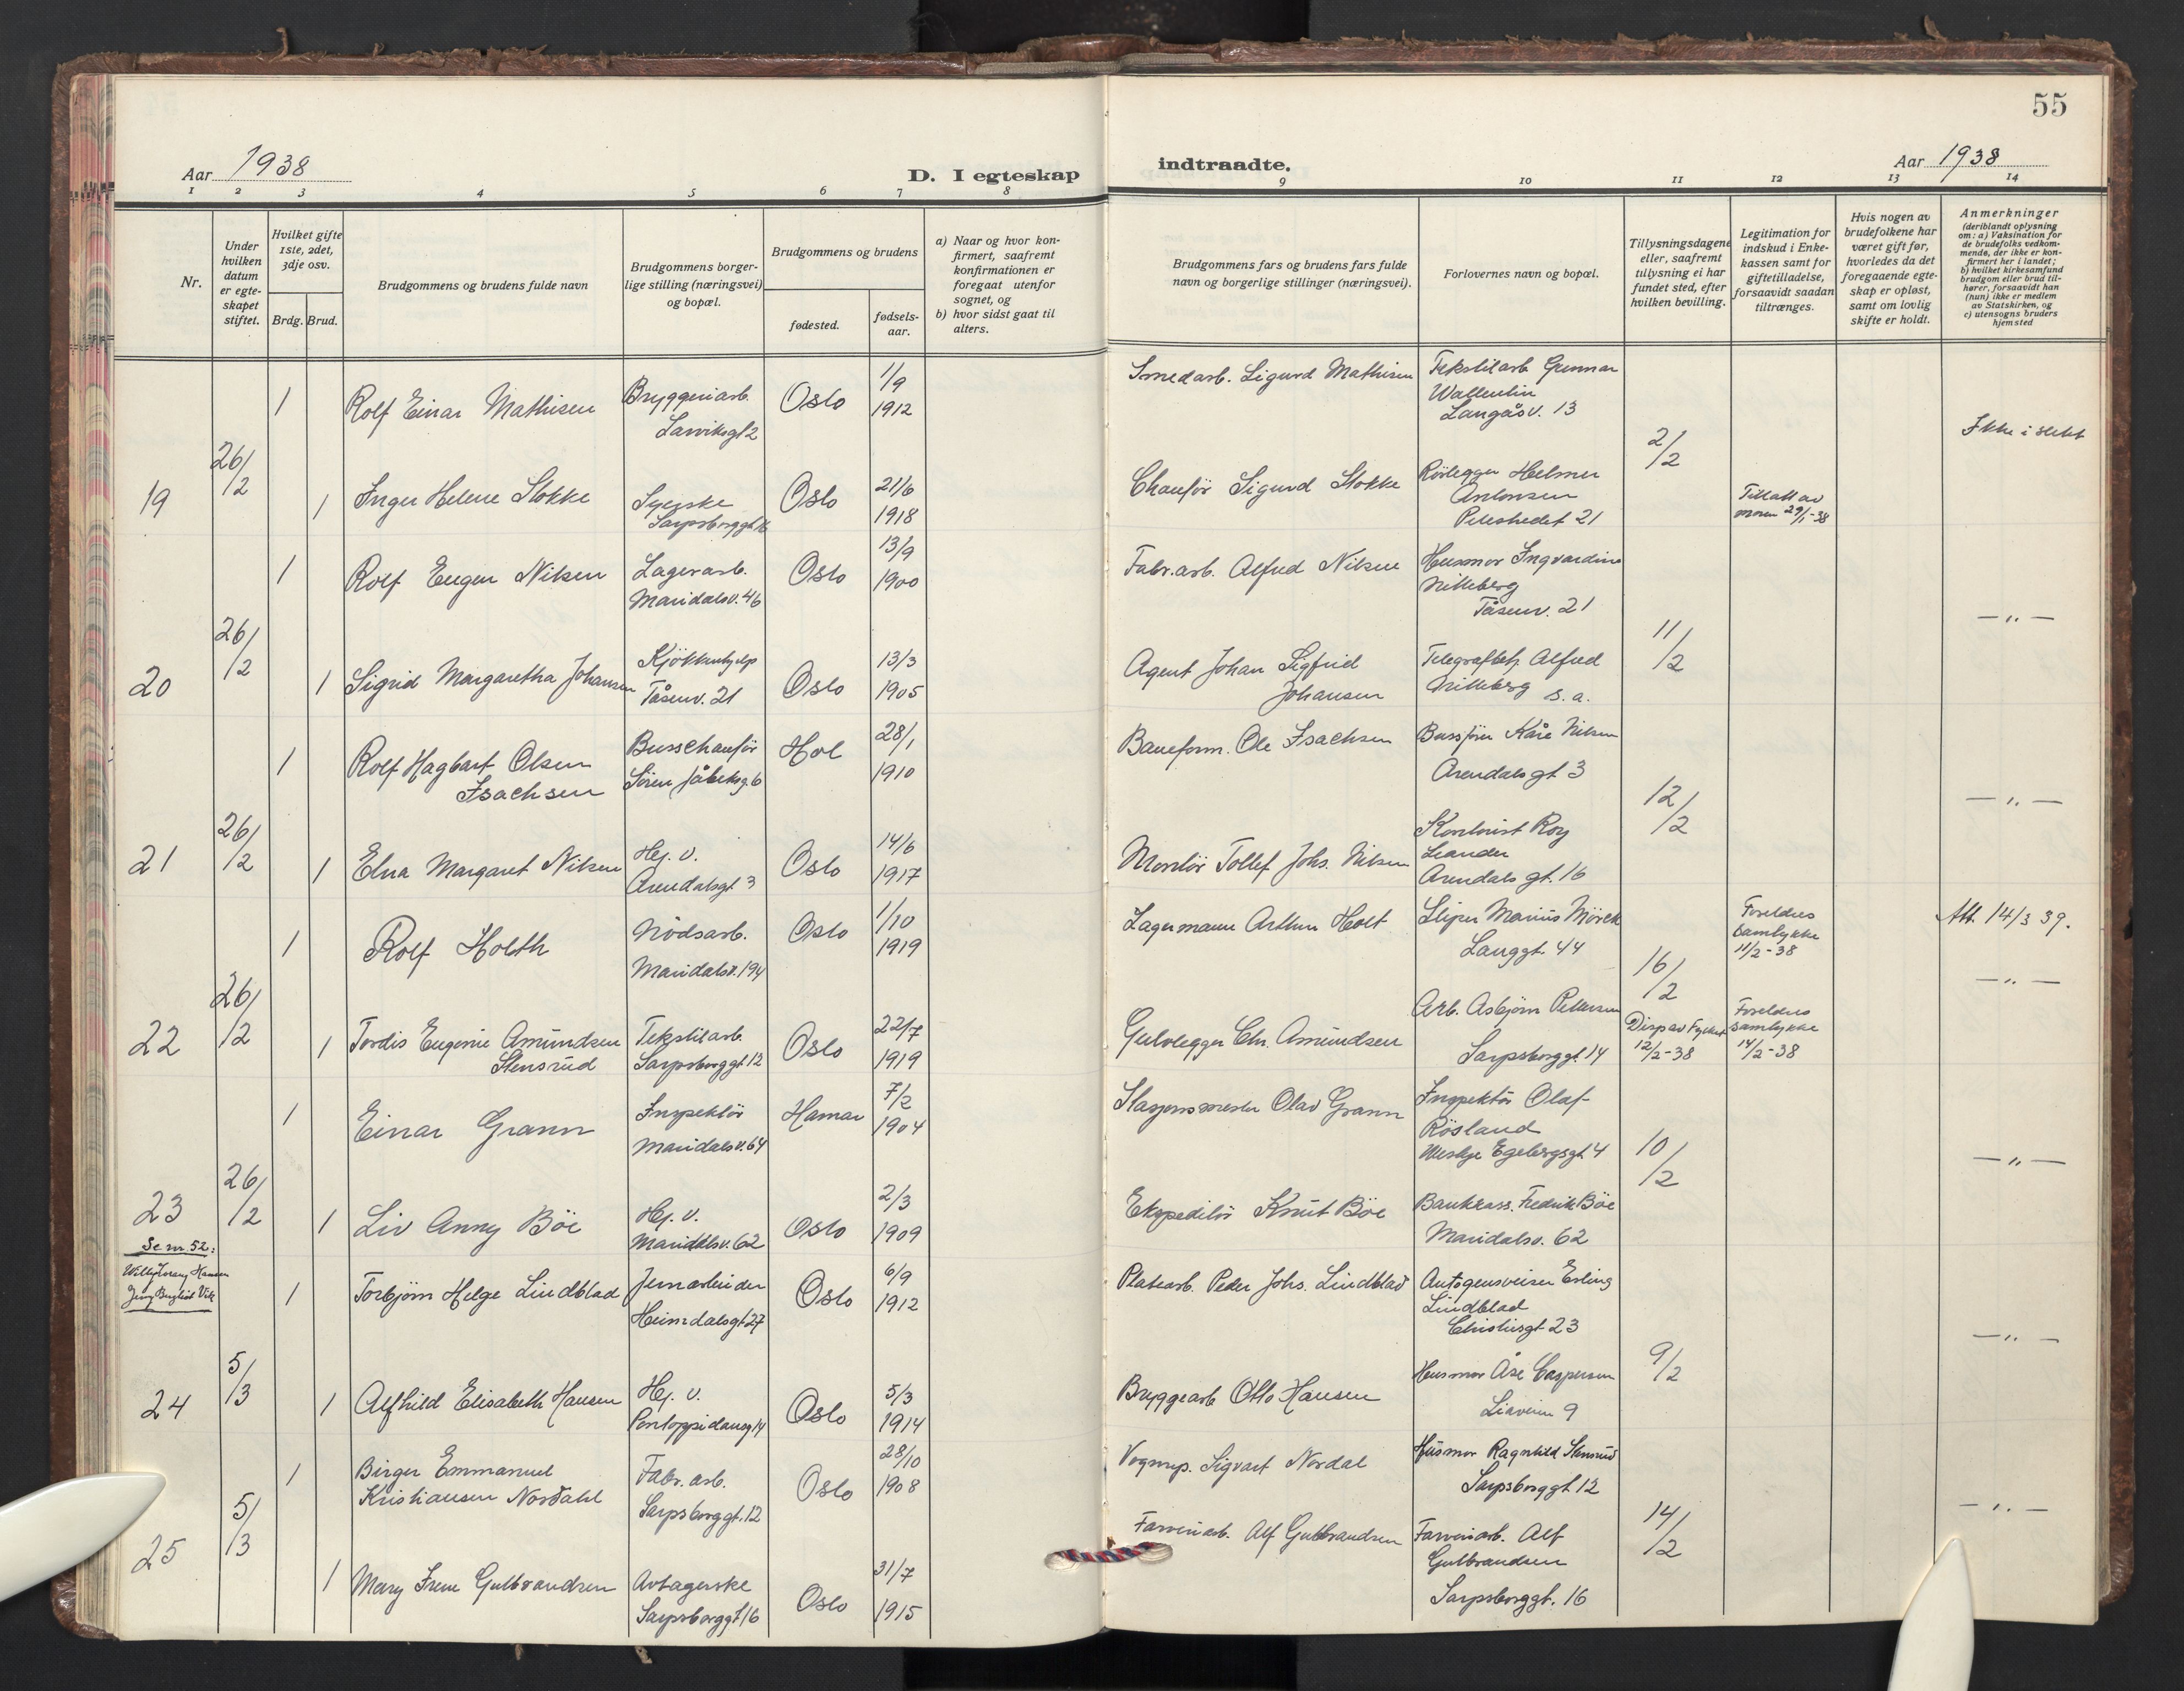 55
Aar 1938
D. I egteskap
indtraadte.
Aar 1938
1 2 3 4 5 6 7 8 9 10 11 12 13 14
Nr.
Under hvilken datum er egteskapet stiftet.
Hvilket gifte 1ste, 2det, 3dje osv.
Brdg. Brud.
Brudgommens og brudens fulde navn
Brudgommens borgerlige stilling (næringsvei) og bopæl.
Brudgommens og brudens
fødested.
fødsels-aar.
a) Naar og hvor konfirmert, saafremt konfirmationen er foregaat utenfor sognet, og
b) hvor sidst gaat til alters.
Brudgommens fars og brudens fars fulde navn og borgerlige stillinger (næringsvei).
Forlovernes navn og bopæl.
Tillysningsdagene eller, saafremt tillysning ei har fundet sted, efter hvilken bevilling.
Legitimation for indskud i Enkekassen samt for giftetilladelse, forsaavidt saadan tiltrænges.
Hvis nogen av brudefolkene har været gift før, hvorledes da det foregaaende egteskap er opløst, samt om lovlig skifte er holdt.
Anmerkninger (deriblandt oplysning om: a) Vaksination for de brudefolks vedkommende, der ikke er konfirmert her i landet; b) hvilket kirkesamfund brudgom eller brud tilhører, forsaavidt han (hun) ikke er medlem av Statskirken, og c) utensogns bruders hjemsted
19
26/2
1 Rolf Einar Mathisen
Bryggeriarb.
Larviksgt 2
Oslo
1/9
1912
Smedarb. Sigurd Mathisen
Tekstilarb Gunnar
Wallentin
Langåsv. 13
2/2
Ikke i slekt
1 Inger Helene Stokke
Syerske
Sarpsborggt 16
Oslo
21/6
1918
Chaufør Sigurd Stokke
Rørlegger Helmer
Antonsen
21
Tillatt av
moren 29/1-38
20
26/2
1 Rolf Eugen Nilsen
Lagerarb.
Maridalsv. 46
Oslo
13/9
1900
Fabr.arb. Alfred Nilsen
Husmor Ingvardine
Nitteberg
Tåsenv. 21
11/2
— " —
1 Sigrid Margaretha Johansen
Kjøkkenhjelp
Tåsenv. 21
Oslo
13/3
1905
Agent Johan Sigfrid
Johansen
Telegrafbetj. Alfred
Nitteberg s. a.
21
26/2
1 Rolf Hagbart Olsen
Isachsen
Busschaufør
Søren Jåbeksg. 6
Hol
28/1
1910
Baneform. Ole Isachsen
Kåre Nilsen
Arendalsgt 3
12/2
— " —
1 Elna Margaret Nilsen
Hj. v.
Arendalsgt 3
Oslo
14/6
1917
Montør Tollef Johs. Nilsen
Kontorist Roy
Leander
Arendalsgt. 16
22
26/2
1 Rolf Holth
Nødsarb.
Maridalsv. 194
Oslo
1/10
1919
Lagermann Arthur Holt
Sliper Marius Mørck
Langgt. 44
16/2
Foreldres
samtykke
11/2-38
Att. 14/3 39.
— " —
1 Tordis Eugenie Amundsen
Stensrud
Tekstilarb.
Sarpsborggt 12
Oslo
22/7
1919
Gulvlegger Chr. Amundsen
Arb. Asbjørn Pettersen
Sarpsborggt. 14
Disp av Fylket
12/2-38
Foreldres
samtykke
14/2-38
23
26/2
1 Einar Grann
Inspektør
Maridalsv. 64
Hamar
7/2
1904
Stasjonsmester Olav Grann
Inspektør Olaf
Røsland
Westye Egebergsgt. 4
10/2
— " —
1 Liv Anny Böe
Hj. v.
Maridalsv. 62
Oslo
2/3
1909
Ekspeditør Knut Böe
Bankkass. Fredrik Böe
Maridalsv. 62
Se nr. 52:
24
5/3
1 Torbjørn Helge Lindblad
Jernarbeider
Heimdalsgt 27
Oslo
6/9
1912
Platearb. Peder Johs. Lindblad
Autogensveiser Erling
Lindblad
Christiesgt 23
9/2
— " —
1 Alfhild Elisabeth Hansen
Hj. v.
Pontoppidansg 14
Oslo
5/3
1914
Bryggearb Otto Hansen
Husmor Åse Caspersen
Liaveien 9
25
5/3
1 Birger Emmanuel
Kristiansen Nordahl
Fabr. arb.
Sarpsborggt. 12
Oslo
28/10
1908
Vognmp. Sigvart Nordal
Husmor Ragnhild Stensrud
Sarpsborggt. 12
14/2
— " —
1 Mary Irene Gulbrandsen
Avtagerske
Sarpsborggt 16
Oslo
31/7
1915
Farveriarb. Alf Gulbrandsen
Farveriarb. Alf
Gulbrandsen
Sarpsborggt. 16